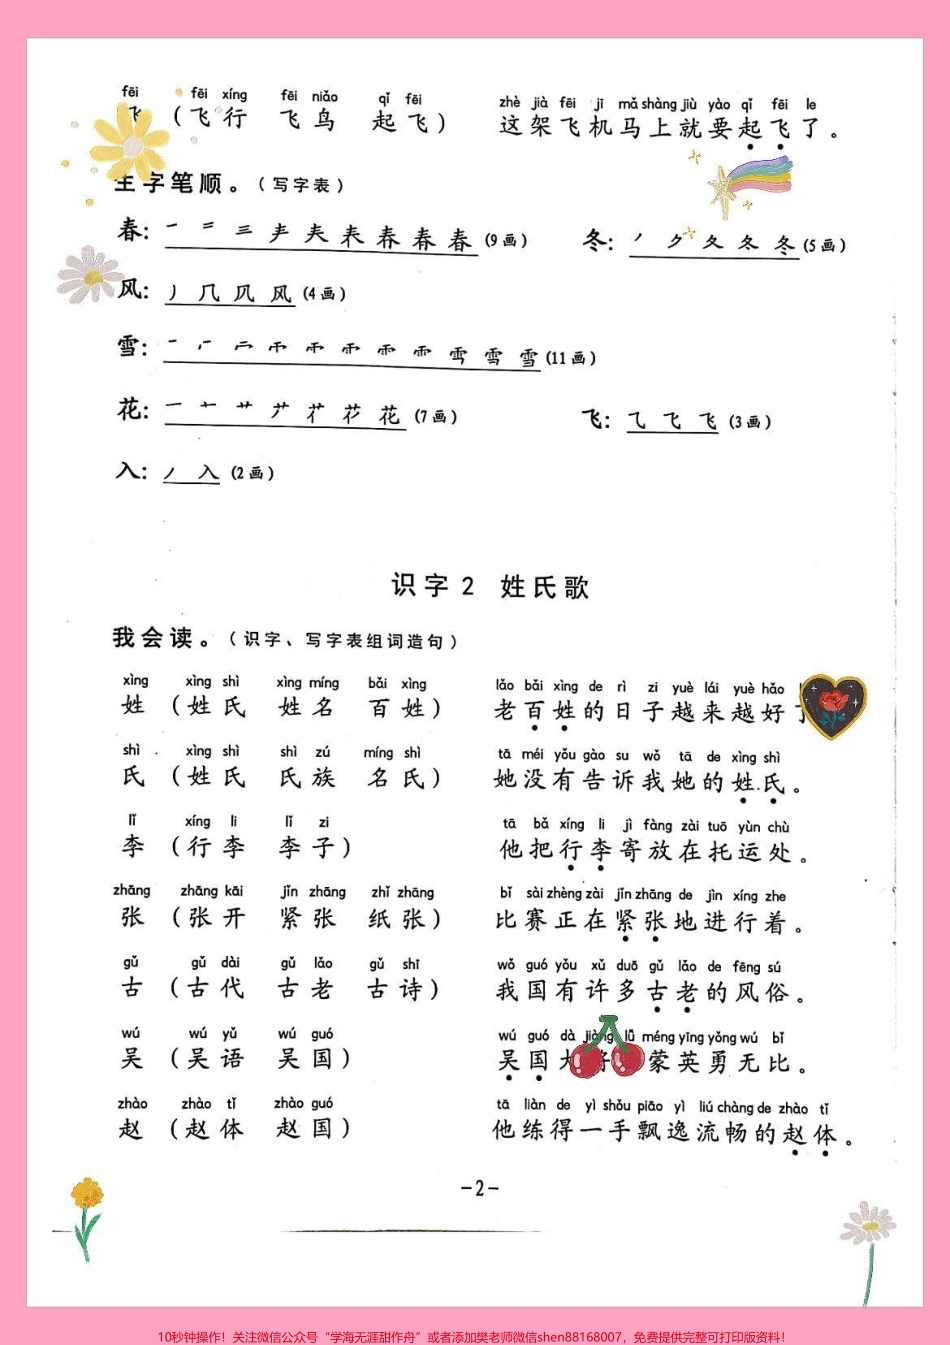 fēi fēi xíng fēi niǎo qǐ fēi zhè jià fēi jī mǎ shàng jiù yào qǐ fēi le
飞（飞行 飞鸟 起飞） 这架飞机马上就要起飞了。
生字笔顺。（写字表）
春：一 二 三 𡗗 夫 表 春 春 春（9画） 冬：丿 ク 夂 冬 冬（5画）
风：丿 几 凤 风（4画）
雪：(11画)
花：一 十 艹 花（7画） 飞：乁 飞 飞（3画）
入：丿 入（2画）
识字2 姓氏歌
我会读。（识字、写字表组词造句）
xìng xìng shì xìng míng bǎi xìng lǎo bǎi xìng de rì zi yuè lái yuè hǎo
姓（姓氏 姓名 百姓） 老百姓的日子越来越好了
shì xìng shì shì zú míng shì tā méi yǒu gào su wǒ tā de xìng shì
氏（姓氏 氏族 名氏） 她没有告诉我她的姓氏。
lǐ xíng li lǐ zi tā bǎ xíng li jì fàng zài tuō yùn chù
李（行李 李子） 他把行李寄放在托运处。
zhāng zhāng kāi jǐn zhāng zhǐ zhāng bǐ sài zhèng zài jǐn zhāng de jìn xíng zhe
张（张开 紧张 纸张） 比赛正在紧张地进行着。
gǔ gǔ dài gǔ lǎo gǔ shī wǒ guó yǒu xǔ duō gǔ lǎo de fēng sú
古（古代 古老 古诗） 我国有许多古老的风俗。
wú wú yǔ wú guó wú guó dà jiàng lǚ méng yīng yǒng wú bǐ
吴（吴语 吴国） 吴国大将 蒙英勇无比。
zhào zhào tǐ zhào guó tā liàn de yì shǒu piāo yì liú chàng de zhào tǐ
赵（赵体 赵国） 他练得一手飘逸流畅的赵体。
-2-
10秒钟操作！关注微信公众号“学海无涯甜作舟”或者添加樊老师微信shen88168007，免费提供完整可打印版资料！